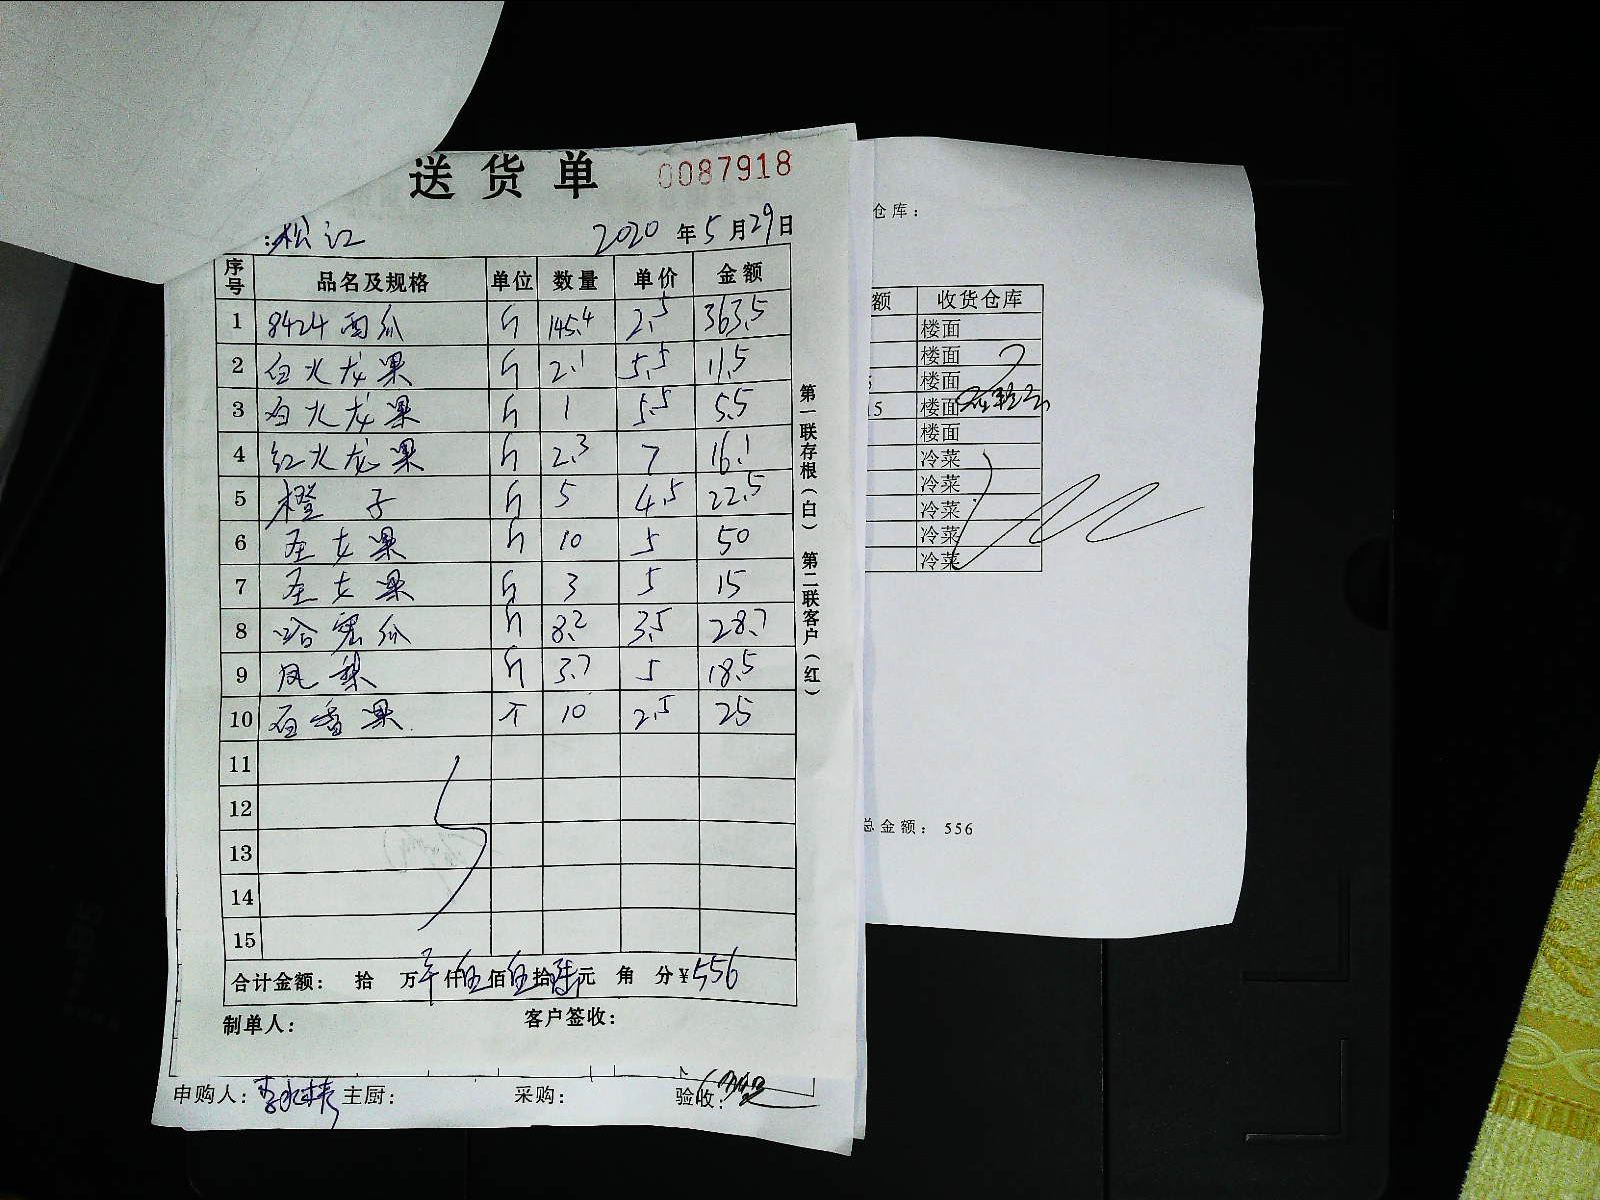 送货单 0087918
:松江 2020年5月29日
序号 品名及规格 单位 数量 单价 金额
1 8424西瓜 斤 145.4 2.5 363.5
2 白火龙果 斤 2.1 5.5 11.5
3 白火龙果 斤 1 5.5 5.5
4 红火龙果 斤 2.3 7 16.1
5 橙子 斤 5 4.5 22.5
6 圣女果 斤 10 5 50
7 圣女果 斤 3 5 15
8 哈密瓜 斤 8.2 3.5 28.7
9 凤梨 斤 3.7 5 18.5
10 百香果 个 10 2.5 25
11
12
13
14
15
合计金额: 拾 万 仟伍佰伍拾陆元 角 分¥556
制单人: 客户签收:
第一联存根(白) 第二联客户(红)
申购人: 主厨: 采购: 验收:
仓库:
额 收货仓库
楼面
楼面
楼面
15 楼面
楼面
冷菜
冷菜
冷菜
冷菜
冷菜
总金额: 556